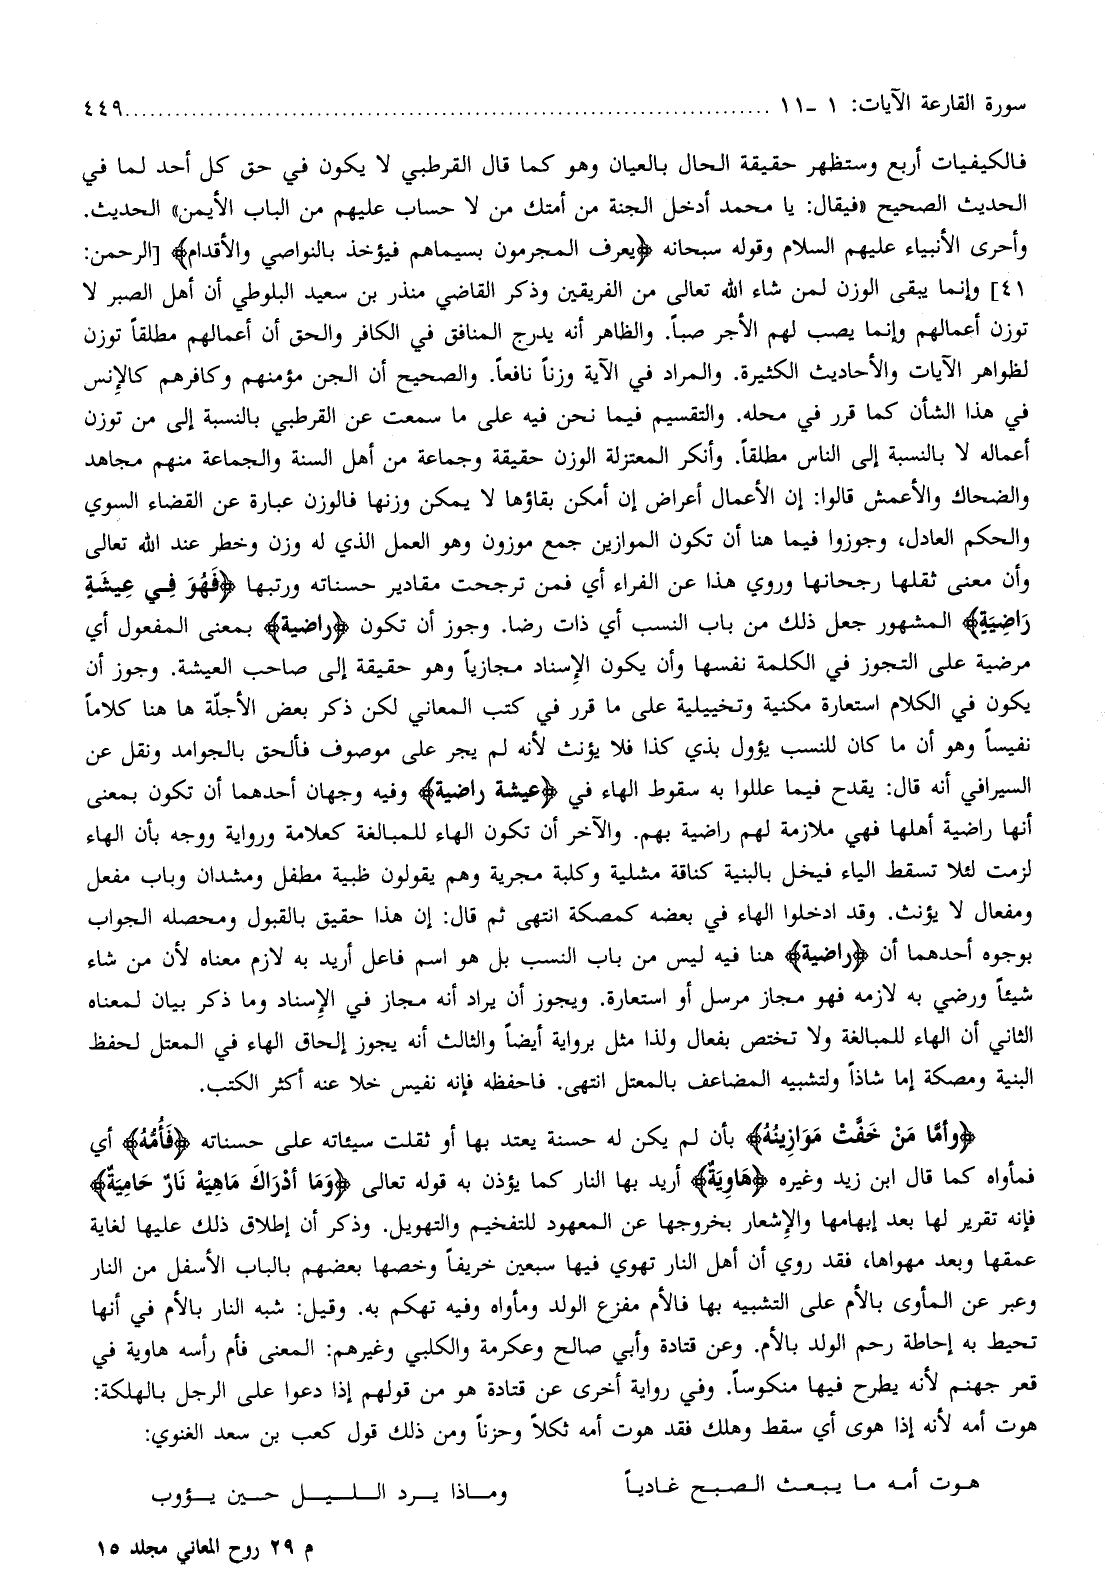 سورة القارعة الآيات: ١ ـ ١١ ........................................................................ ٤٤٩
فالكيفيات أربع وستظهر حقيقة الحال بالعيان وهو كما قال القرطبي لا يكون في حق كل أحد لما في
الحديث الصحيح «فيقال: يا محمد أدخل الجنة من أمتك من لا حساب عليهم من الباب الأيمن» الحديث.
وأحرى الأنبياء عليهم السلام وقوله سبحانه ﴿يعرف المجرمون بسيماهم فيؤخذ بالنواصي والأقدام﴾ [الرحمن:
٤١] وإنما يبقى الوزن لمن شاء الله تعالى من الفريقين وذكر القاضي منذر بن سعيد البلوطي أن أهل الصبر لا
توزن أعمالهم وإنما يصب لهم الأجر صباً. والظاهر أنه يدرج المنافق في الكافر والحق أن أعمالهم مطلقاً توزن
لظواهر الآيات والأحاديث الكثيرة. والمراد في الآية وزناً نافعاً. والصحيح أن الجن مؤمنهم وكافرهم كالإنس
في هذا الشأن كما قرر في محله. والتقسيم فيما نحن فيه على ما سمعت عن القرطبي بالنسبة إلى من توزن
أعماله لا بالنسبة إلى الناس مطلقاً. وأنكر المعتزلة الوزن حقيقة وجماعة من أهل السنة والجماعة منهم مجاهد
والضحاك والأعمش قالوا: إن الأعمال أعراض إن أمكن بقاؤها لا يمكن وزنها فالوزن عبارة عن القضاء السوي
والحكم العادل، وجوزوا فيما هنا أن تكون الموازين جمع موزون وهو العمل الذي له وزن وخطر عند الله تعالى
وأن معنى ثقلها رجحانها وروي هذا عن الفراء أي فمن ترجحت مقادير حسناته ورتبها ﴿فَهُوَ فِي عِيشَةٍ
رَاضِيَةٍ﴾ المشهور جعل ذلك من باب النسب أي ذات رضا. وجوز أن تكون ﴿راضية﴾ بمعنى المفعول أي
مرضية على التجوز في الكلمة نفسها وأن يكون الإسناد مجازياً وهو حقيقة إلى صاحب العيشة. وجوز أن
يكون في الكلام استعارة مكنية وتخييلية على ما قرر في كتب المعاني لكن ذكر بعض الأجلّة ها هنا كلاماً
نفيساً وهو أن ما كان للنسب يؤول بذي كذا فلا يؤنث لأنه لم يجر على موصوف فألحق بالجوامد ونقل عن
السيرافي أنه قال: يقدح فيما عللوا به سقوط الهاء في ﴿عيشة راضية﴾ وفيه وجهان أحدهما أن تكون بمعنى
أنها راضية أهلها فهي ملازمة لهم راضية بهم. والآخر أن تكون الهاء للمبالغة كعلامة ورواية ووجه بأن الهاء
لزمت لئلا تسقط الياء فيخل بالبنية كناقة مشلية وكلبة مجرية وهم يقولون ظبية مطفل ومشدان وباب مفعل
ومفعال لا يؤنث. وقد ادخلوا الهاء في بعضه كمصكة انتهى ثم قال: إن هذا حقيق بالقبول ومحصله الجواب
بوجوه أحدهما أن ﴿راضية﴾ هنا فيه ليس من باب النسب بل هو اسم فاعل أريد به لازم معناه لأن من شاء
شيئاً ورضي به لازمه فهو مجاز مرسل أو استعارة. ويجوز أن يراد أنه مجاز في الإسناد وما ذكر بيان لمعناه
الثاني أن الهاء للمبالغة ولا تختص بفعال ولذا مثل برواية أيضاً والثالث أنه يجوز إلحاق الهاء في المعتل لحفظ
البنية ومصكة إما شاذاً ولتشبيه المضاعف بالمعتل انتهى. فاحفظه فإنه نفيس خلا عنه أكثر الكتب.
﴿وأمَّا مَنْ خَفَّتْ مَوَازِينُهُ﴾ بأن لم يكن له حسنة يعتد بها أو ثقلت سيئاته على حسناته ﴿فَأُمُّهُ﴾ أي
فمأواه كما قال ابن زيد وغيره ﴿هَاوِيَةٌ﴾ أريد بها النار كما يؤذن به قوله تعالى ﴿وَمَا أدْرَاكَ مَاهِيَهْ نَارٌ حَامِيَةٌ﴾
فإنه تقرير لها بعد إبهامها والإشعار بخروجها عن المعهود للتفخيم والتهويل. وذكر أن إطلاق ذلك عليها لغاية
عمقها وبعد مهواها، فقد روي أن أهل النار تهوي فيها سبعين خريفاً وخصها بعضهم بالباب الأسفل من النار
وعبر عن المأوى بالأم على التشبيه بها فالأم مفزع الولد ومأواه وفيه تهكم به. وقيل: شبه النار بالأم في أنها
تحيط به إحاطة رحم الولد بالأم. وعن قتادة وأبي صالح وعكرمة والكلبي وغيرهم: المعنى فأم رأسه هاوية في
قعر جهنم لأنه يطرح فيها منكوساً. وفي رواية أخرى عن قتادة هو من قولهم إذا دعوا على الرجل بالهلكة:
هوت أمه لأنه إذا هوى أي سقط وهلك فقد هوت أمه ثكلاً وحزناً ومن ذلك قول كعب بن سعد الغنوي:
هوت أمه ما يبعث الصبح غادياً    وماذا يرد الليل حين يؤوب
م ٢٩ روح المعاني مجلد ١٥